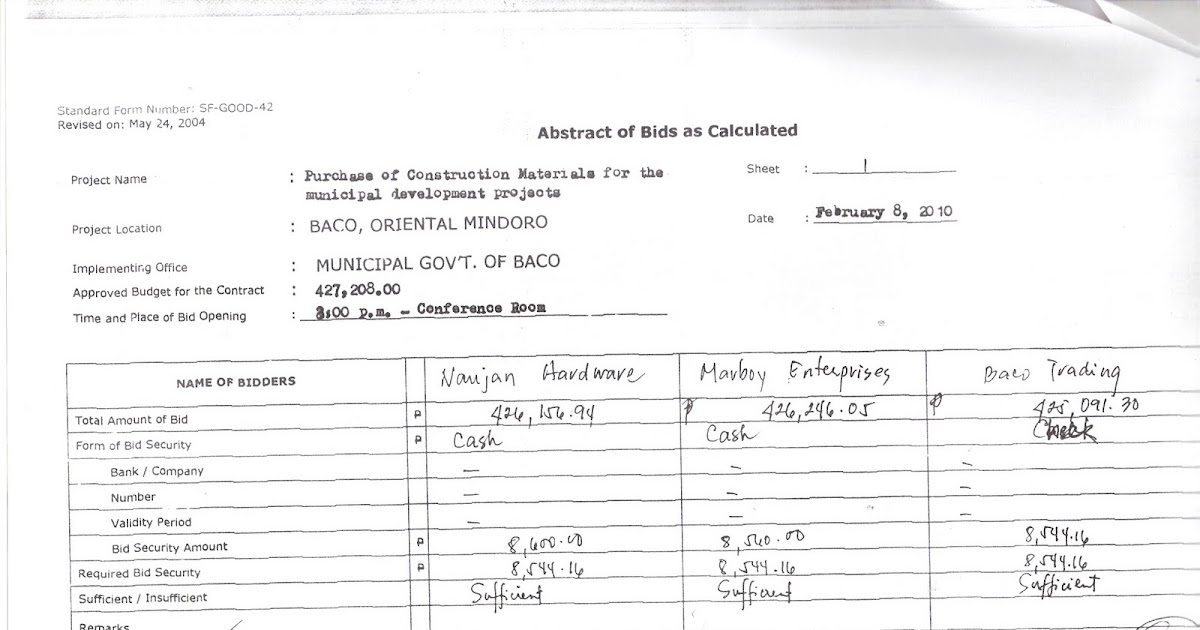 Standard Form Number: SF-GOOD-42
Revised on: May 24, 2004
Abstract of Bids as Calculated
Project Name : Purchase of Construction Materials for the Sheet : 1
municipal development projects
Project Location : BACO, ORIENTAL MINDORO Date : February 8, 2010
Implementing Office : MUNICIPAL GOV'T. OF BACO
Approved Budget for the Contract : 427,208.00
Time and Place of Bid Opening : 3:00 p.m. - Conference Room
NAME OF BIDDERS Naujan Hardware Marboy Enterprises Baco Trading
Total Amount of Bid P 426,156.94 P 426,246.05 P 425,091.30
Form of Bid Security P Cash Cash
Bank / Company — – –
Number — – –
Validity Period — — –
Bid Security Amount P 8,600.00 8,560.00 8,544.16
Required Bid Security P 8,544.16 8,544.16 8,544.16
Sufficient / Insufficient Sufficient Sufficient Sufficient
Remarks